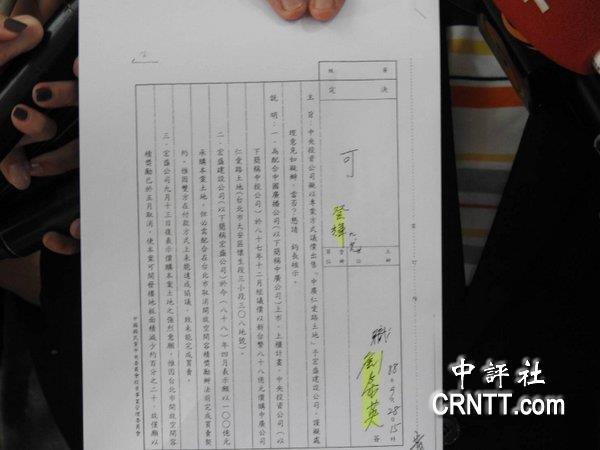 決定
可
登輝
職
劉泰英
88.9.28.15時
主　旨：中央投資公司擬以專案方式議價出售「中廣仁愛路土地」予宏盛建設公司，謹擬處
理意見如擬辦，當否？懇請　鈞長核示。
說　明：一、為配合中國廣播公司（以下簡稱中廣公司）上市、上櫃計畫，中央投資公司（以
下簡稱中投公司）於八十七年十二月經議價以新台幣八十八億元價購中廣公司
仁愛路土地（台北市大安區懷生段三小段三０八地號）。
二、宏盛建設公司（以下簡稱宏盛公司）於今（八十八）年四月表示願以一００億元
承購本案土地，但必需配合在台北市取消開放空間容積獎勵辦法前完成買賣契
約，惟因雙方在付款方式上未能達成協議，致未能完成買賣。
三、宏盛公司九月十三日復表示價購本案土地之強烈意願，惟因台北市開放空間容
積獎勵已於五月取消，使本案可開發樓地板面積減少約百分之二十，故僅願以
中國國民黨中央委員會投資事業管理委員會
中評社
CRNTT.com